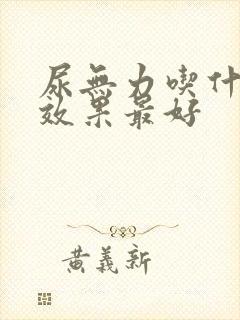 尿無力喫什
效果最好
黃義新